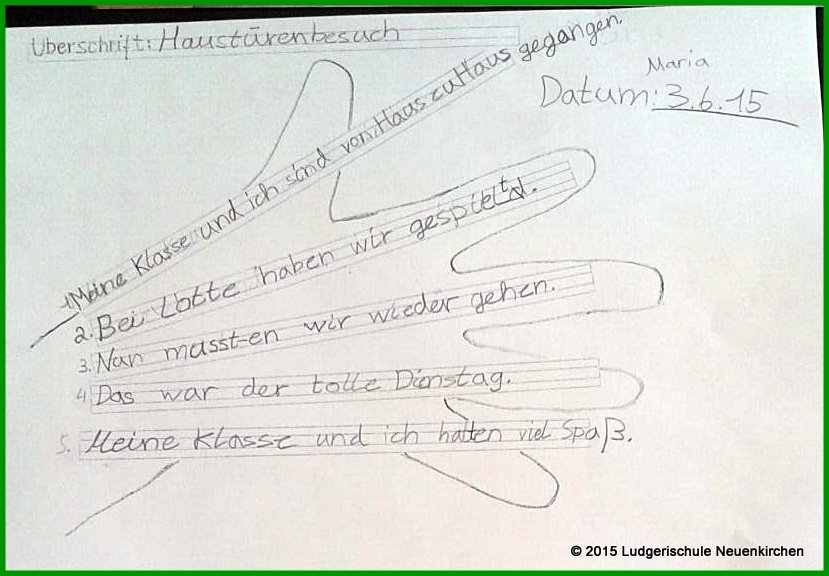 Überschrift: Haustürenbesuch
Maria
Datum: 3.6.15
1. Meine Klasse und ich sind von Haus zu Haus gegangen.
2. Bei Lotte haben wir gespielt.
3. Nun musst-en wir wieder gehen.
4 Das war der tolle Dienstag.
5. Meine Klasse und ich hatten viel Spaß.
© 2015 Ludgerischule Neuenkirchen